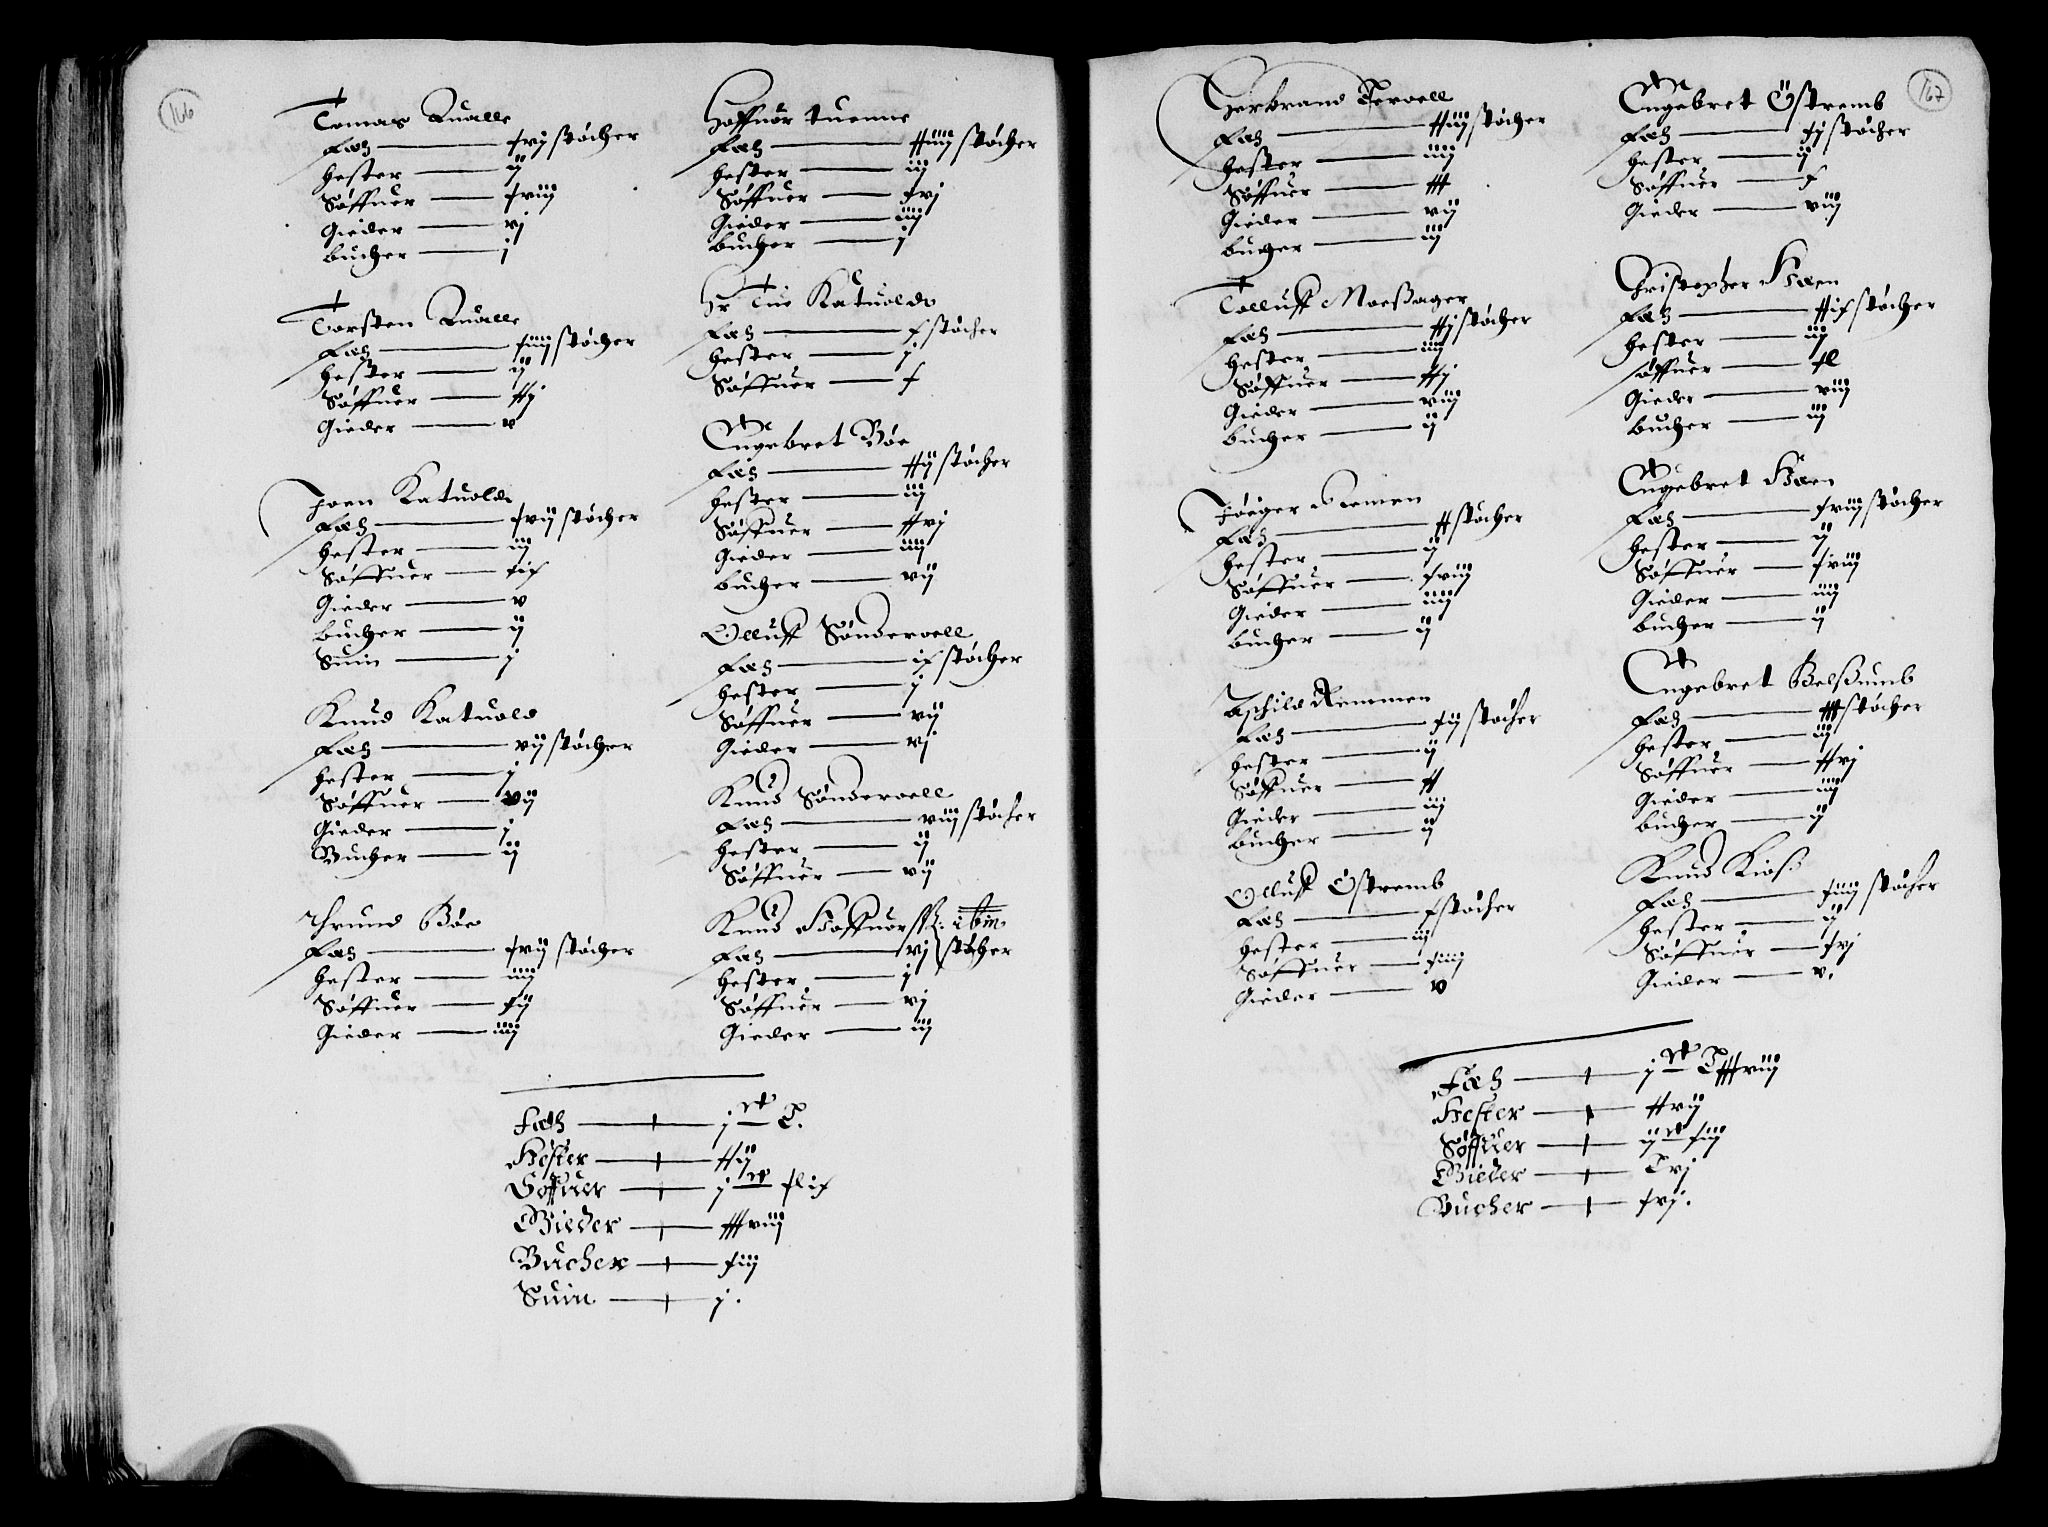 166
Tomas Qualle
Fæh — xvj støcher
Hester — ij
Søffuer — xviij
Gieder — vj
Bucher — j
Torsten Qualle
Fæh — xiiij støcher
Hester — ij
Søffuer — xxj
Gieder — v
Joen Katuolds
Fæh — xvij støcher
Hester — iij
Søffuer — xix
Gieder — v
Bucher — ij
Suin — j
Knud Katuold
Fæh — vij støcher
Hester — j
Søffuer — vij
Gieder — j
Bucher — ij
Thrund Bøe
Fæh — xvij støcher
Hester — iiij
Søffuer — xij
Gieder — iiij
Hoffuor tuenne
Fæh — xxiiij støcher
Hester — iij
Søffuer — xvj
Gieder — iiij
Bucher — j
Hr Tue Katuolds
Fæh — x støcher
Hester — j
Søffuer — x
Engebret Bøe
Fæh — xxij støcher
Hester — iij
Søffuer — xxvj
Gieder — iiij
Bucher — vij
Olluff Sønderuell
Fæh — ix støcher
Hester — j
Søffuer — vij
Gieder — vj
Knud Sønderuell
Fæh — viij støcher
Hester — ij
Søffuer — vij
Knud Hoffuors ibm
Fæh — vj støcher
Hester — j
Søffuer — vj
Gieder — iij
Fæh — j C.
Hester — xxiij
Søffuer — j xlix
Gieder — xxxviij
Bucher — xiij
Suin — j.
167
Herbrand Teruell
Fæh — xxiiij støcher
Hester — iiij
Søffuer — xxx
Gieder — vij
Bucher — iij
Tolluff Moeßager
Fæh — xxj støcher
Hester — iiij
Søffuer — xxj
Gieder — viij
Bucher — ij
Fæh — xx støcher
Hester — ij
Søffuer — xviij
Gieder — iiij
Bucher — ij
Aschild Remmen
Fæh — xij støcher
Hester — ij
Søffuer — xx
Gieder — iij
Bucher — ij
Olluff Østremb
Fæh — x støcher
Hester — iij
Søffuer — xiiij
Gieder — v
Engebret Østremb
Fæh — xij støcher
Hester — ij
Søffuer — x
Gieder — viij
Christopher Hæen
Fæh — xxix støcher
Hester — iij
Søffuer — xl
Gieder — viij
Bucher — iij
Engebret Hæen
Fæh — xviij støcher
Hester — ij
Søffuer — xviij
Gieder — iiij
Bucher — ij
Engebret Belßumb
Fæh — xxx støcher
Hester — iij
Søffuer — xxvj
Gieder — iiij
Bucher — ij
Knud Kiøs
Fæh — xiiij støcher
Hester — ij
Søffuer — xvj
Gieder — v.
Fæh — j Cxxxviij
Hester — xxvij
Søffuer — ij xiij
Gieder — Cvj
Bucher — xvj.